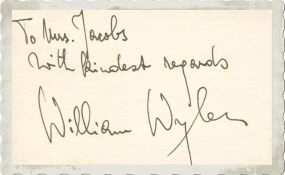 To Mrs. Jacobs
with kindest regards
William Wyler